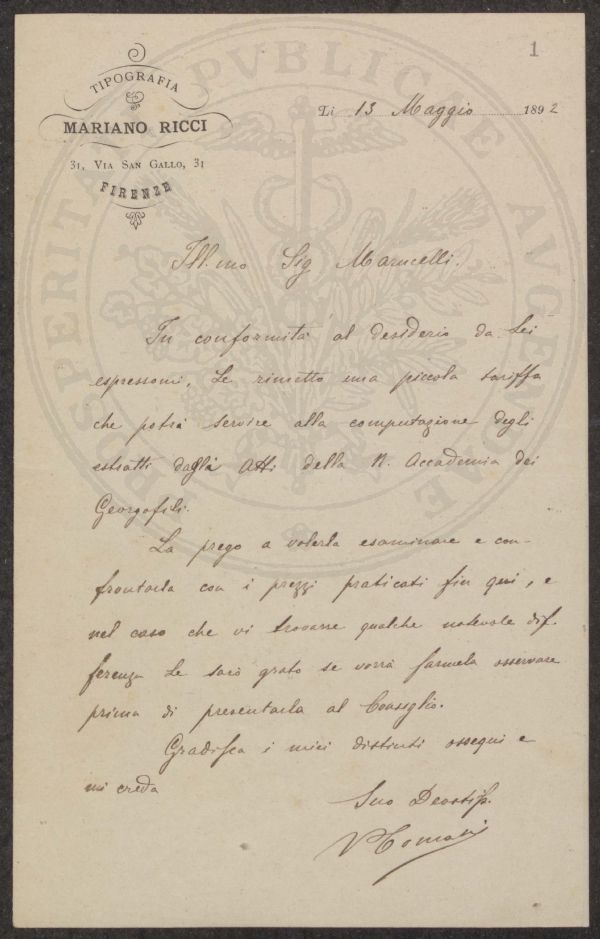 1
TIPOGRAFIA
MARIANO RICCI
31, VIA SAN GALLO, 31
FIRENZE
Li 13 Maggio 1892
Ill.mo Sig Marucelli.
In conformità al desiderio da Lei
espressomi, Le rimetto una piccola tariffa
che potrà servire alla computazione degli
estratti dagli Atti della R. Accademia dei
Georgofili.
La prego a volerla esaminare e con-
frontarla con i prezzi praticati fin qui, e
nel caso che vi trovasse qualche notevole dif-
ferenza Le sarò grato se vorrà farmela osservare
prima di presentarla al Consiglio.
Gradisca i miei distinti ossequi e
mi creda
Suo Devotiss.
PROSPERITATI PVBLICAE AVGENDAE